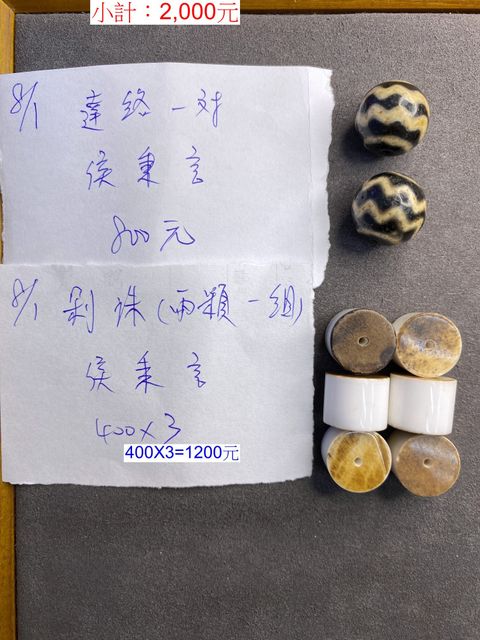 小計：2,000元
8/1 達絡一对
侯秉言
800元
8/1 剝珠(兩顆一組)
侯秉言
400X3
400X3=1200元